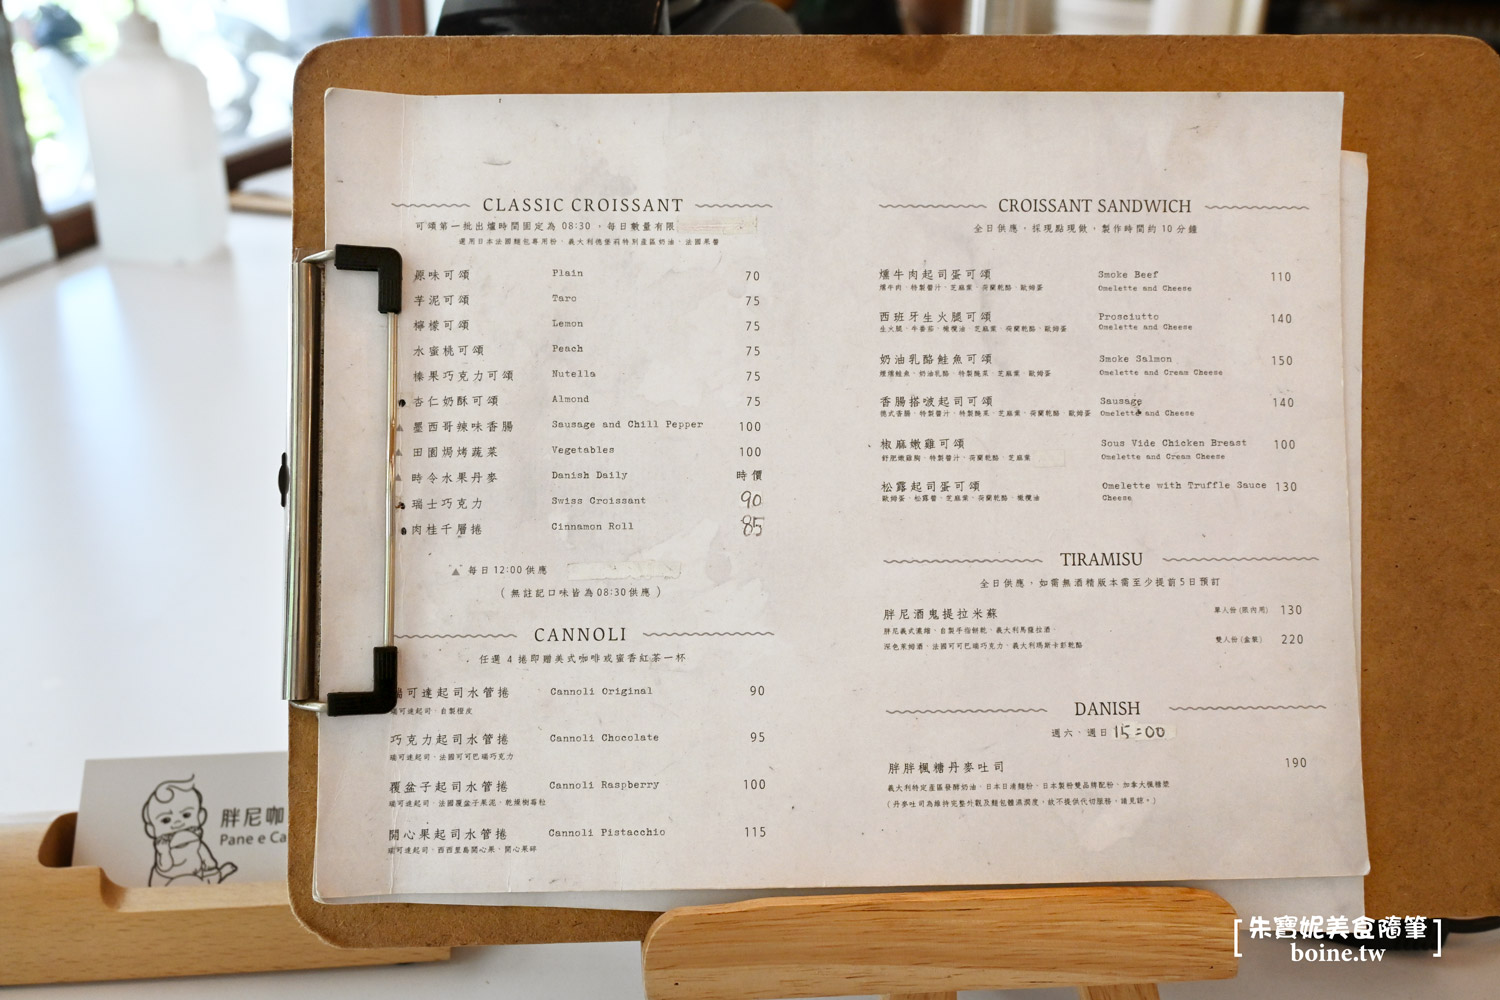 CLASSIC CROISSANT
可頌第一批出爐時間固定為 08:30，每日數量有限
選用日本法國麵包專用粉、義大利德堡莉特別產區奶油、法國果醬
原味可頌 Plain 70
芋泥可頌 Taro 75
檸檬可頌 Lemon 75
水蜜桃可頌 Peach 75
榛果巧克力可頌 Nutella 75
杏仁奶酥可頌 Almond 75
▲墨西哥辣味香腸 Sausage and Chill Pepper 100
▲田園焗烤蔬菜 Vegetables 100
▲時令水果丹麥 Danish Daily 時價
瑞士巧克力 Swiss Croissant 90
肉桂千層捲 Cinnamon Roll 85
▲ 每日 12:00 供應
( 無註記口味皆為 08:30 供應 )
CANNOLI
任選 4 捲即贈美式咖啡或蜜香紅茶一杯
瑞可達起司水管捲 Cannoli Original 90
瑞可達起司、自製橙皮
巧克力起司水管捲 Cannoli Chocolate 95
瑞可達起司、法國可可巴瑞巧克力
覆盆子起司水管捲 Cannoli Raspberry 100
瑞可達起司、法國覆盆子果泥、乾燥樹莓粒
開心果起司水管捲 Cannoli Pistacchio 115
瑞可達起司、西西里島開心果、開心果碎
CROISSANT SANDWICH
全日供應，採現點現做，製作時間約 10 分鐘
燻牛肉起司蛋可頌 Smoke Beef 110
燻牛肉、特製醬汁、芝麻葉、荷蘭乾酪、歐姆蛋 Omelette and Cheese
西班牙生火腿可頌 Prosciutto 140
生火腿、牛番茄、橄欖油、芝麻葉、荷蘭乾酪、歐姆蛋 Omelette and Cheese
奶油乳酪鮭魚可頌 Smoke Salmon 150
煙燻鮭魚、奶油乳酪、特製醃菜、芝麻葉、歐姆蛋 Omelette and Cream Cheese
香腸搭啵起司可頌 Sausage 140
德式香腸、特製醬汁、特製醃菜、芝麻葉、荷蘭乾酪、歐姆蛋 Omelette and Cheese
椒麻嫩雞可頌 Sous Vide Chicken Breast 100
舒肥嫩雞胸、特製醬汁、荷蘭乾酪、芝麻葉 Omelette and Cream Cheese
松露起司蛋可頌 Omelette with Truffle Sauce 130
歐姆蛋、松露醬、芝麻葉、荷蘭乾酪、橄欖油 Cheese
TIRAMISU
全日供應，如需無酒精版本需至少提前5日預訂
胖尼酒鬼提拉米蘇 單人份(限內用) 130
胖尼義式濃縮、自製手指餅乾、義大利馬薩拉酒、
深色萊姆酒、法國可可巴瑞巧克力、義大利瑪斯卡彭乾酪 雙人份(盒裝) 220
DANISH
週六、週日 15:00
胖胖楓糖丹麥吐司 190
義大利特定產區發酵奶油、日本日清麵粉、日本製粉雙品牌配粉、加拿大楓糖漿
( 丹麥吐司為維持完整外觀及麵包體濕潤度，故不提供代切服務，請見諒。)
胖尼咖
Pane e Ca
[朱寶妮美食隨筆]
boine.tw